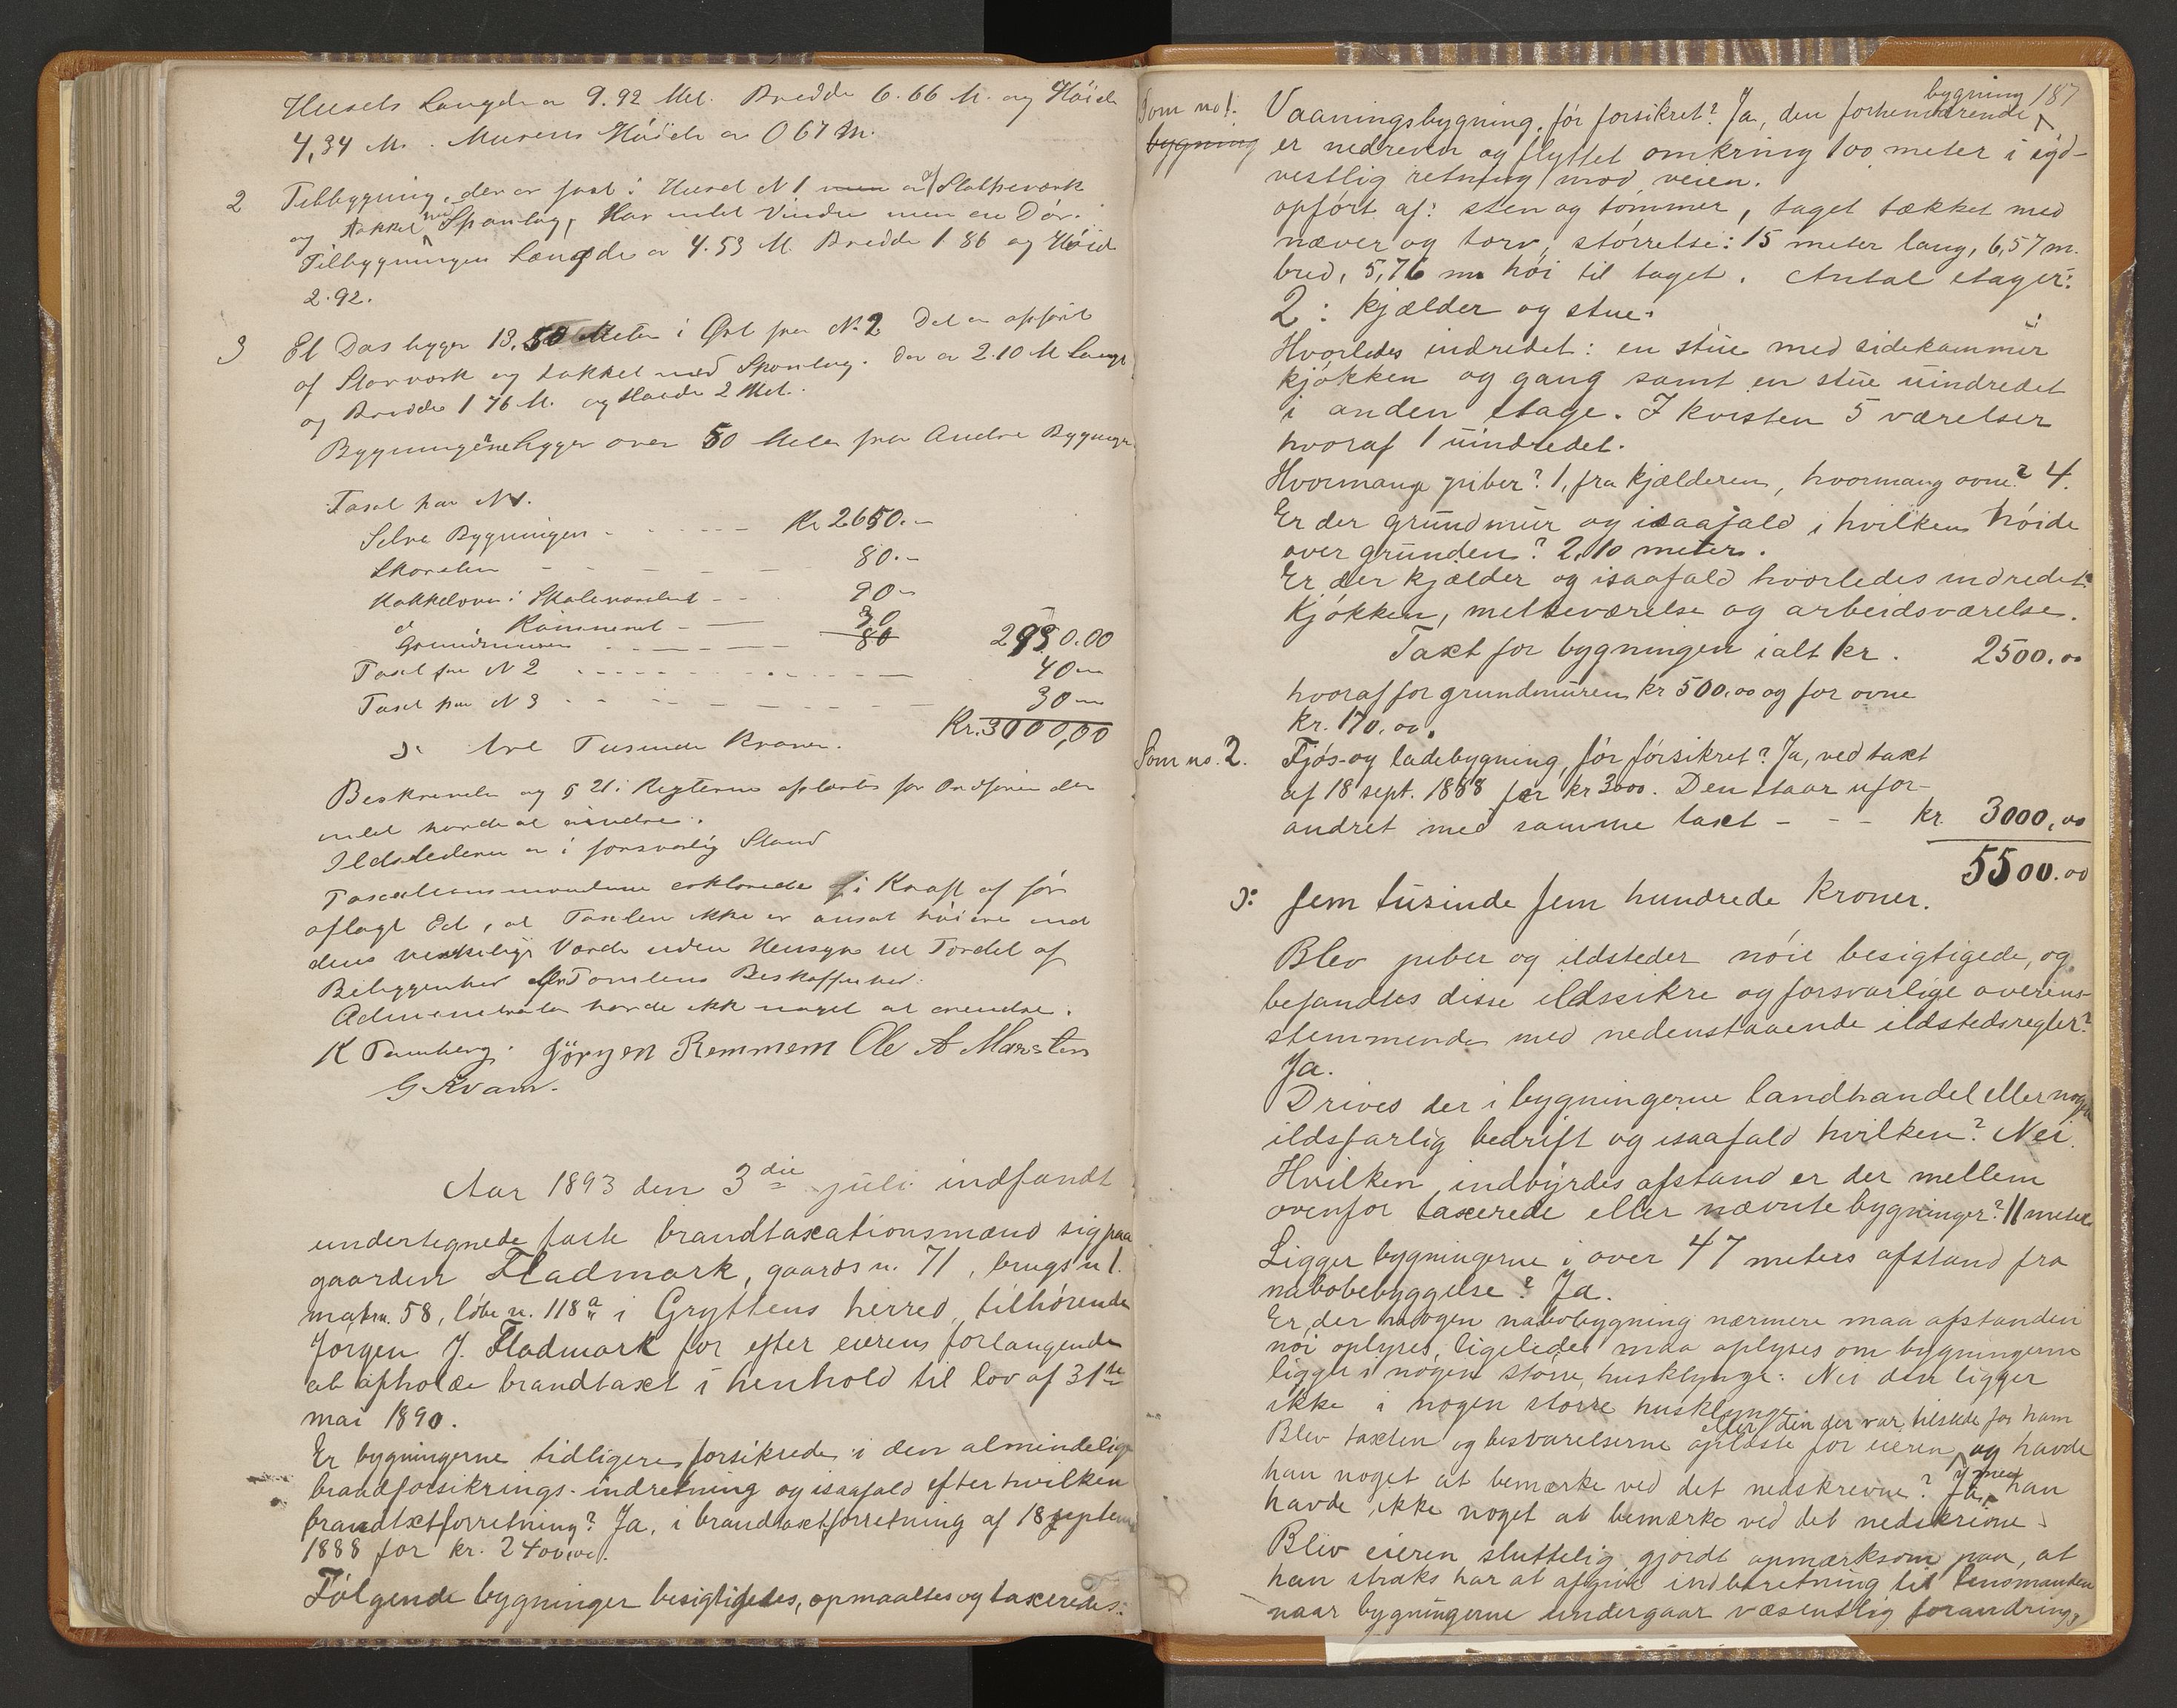 Husets Længde er 9.92 Met. Bredde 6.66 M. og Höide
4,34 M. Murens Höide er 0 67 M.
2 Tilbygning, der er fast i Huset N 1 er af Stolpeværk
og takket med Spontag, Har intet Vindu men en Dör.
Tilbygningen Længde er 4.53 M. Bredde 1 86 og Höide
2.92.
3 Et Das ligger 13.50 Meter i Öst fra N. 2 Det er opfört
af Stavværk og takket med Spontag. Der er 2.10 M Langt
og Bredde 1 76 M. og Höide 2 Met.
Bygningene ligger over 50 Meter fra Andre Bygninger
Taxt for N 1.
Selve Bygningen - - - Kr 2650.-
Skorsten - - - - - 80.-
Kakkelovn i - - 90-
d Kammeret - - 30
Grundmuren - - - - 80 2930.00
Taxt for N 2 - - - - - 40-
Taxt for N 3 - - - - - 30-
Kr. 3000,00
ɔ: tre Tusinde Kroner.
Beskrivelse og § 21 i Reglerne oplæstes for den
intet havde at erindre.
Ildstederne er i forsvarlig Stand
Taxationsmændene erklærede i Kraft af för
aflagt Ed, at Taxten ikke er ansat höiere end
dens virkelige Værde uden Hensyn til Fordel af
Beliggenhed eller Tomtens Beskaffenhed.
Administrator havde ikke noget at erindre.
K Tamberg. Jörgen Remmem Ole A Marsten
G Kvam.
Aar 1893 den 3die juli indfandt
undertegnede faste brandtaxationsmænd sig paa
gaarden Fladmark, gaards n. 71, brugs n 1.
matr. n. 58, löbe n. 118a i Gryttens herred, tilhörende
Jörgen J. Fladmark for efter eierens forlangende
at afholde brandtaxt i henhold til lov af 31te
mai 1890.
Er bygningerne tidligere forsikrede i den almindelige
brandforsikrings-indretning og isaafald efter hvilken
brandtaxtforretning? Ja, i brandtaxtforretning af 18 septem
1888 for kr. 2400,00.
Fölgende bygninger besigtigedes, opmaaltes og taxeredes:
187
Som no 1. bygning Vaaningsbygning, för forsikret? Ja, den forhenværende bygning
er nedreven og flyttet omkring 100 meter i syd-
vestlig retning mod veien.
opfört af: sten og tömmer, taget tækket med
næver og torv, störrelse: 15 meter lang, 6,57 m.
bred, 5,76 m höi til taget. Antal etager:
2: kjælder og stue.
Hvorledes indredet: en stue med sidekammer
kjökken og gang samt en stue uindredet
i anden etage. I kvisten 5 værelser
hvoraf 1 uindredet.
Hvormange piber? 1, fra kjælderen, hvormang ovne? 4.
Er der grundmur og isaafald i hvilken höide
over grunden? 2,10 meter.
Er der kjælder og isaafald hvorledes indredet?
Kjökken, melkeværelse og arbeidsværelse.
Taxt for bygningen ialt kr. 2500.00
hvoraf for grundmuren kr 500.00 og for ovne
kr. 170.00.
Som no. 2. Fjös- og ladebygning, för forsikret? Ja, ved taxt
af 18 sept. 1888 for kr 3000. Den staar ufor-
andret med samme taxt - - - kr. 3000,00
5500.00
ɔ: fem tusinde fem hundrede kroner.
Blev piber og ildsteder nöie besigtigede, og
befandtes disse ildssikre og forsvarlige overens-
stemmende med nedenstaaende ildstedsregler?
Ja.
Drives der i bygningerne landhandel eller nogen
ildsfarlig bedrift og isaafald hvilken? Nei.
Hvilken indbyrdes afstand er der mellem
ovenfor taxerede eller nævnte bygninger? 11 meter
Ligger bygningerne i over 47 meters afstand fra
nabobebyggelse? Ja.
Er der nogen nabobygning nærmere maa afstanden
nöi oplyses, ligeledes maa oplyses om bygningerne
ligger i nogen större husklynge: Nei den ligger
ikke i nogen större husklynge.
Blev taxten og besvarelserne oplæste for eieren eller den der var tilstede for ham og havde
han noget at bemærke ved det nedskrevne? Ja, men han
havde ikke noget at bemærke ved det nedskrevne.
Blev eieren sluttelig gjordt opmærksom paa, at
han straks har at afgive indberetning til lensmanden
naar bygningerne undergaar væsentlig forandring,